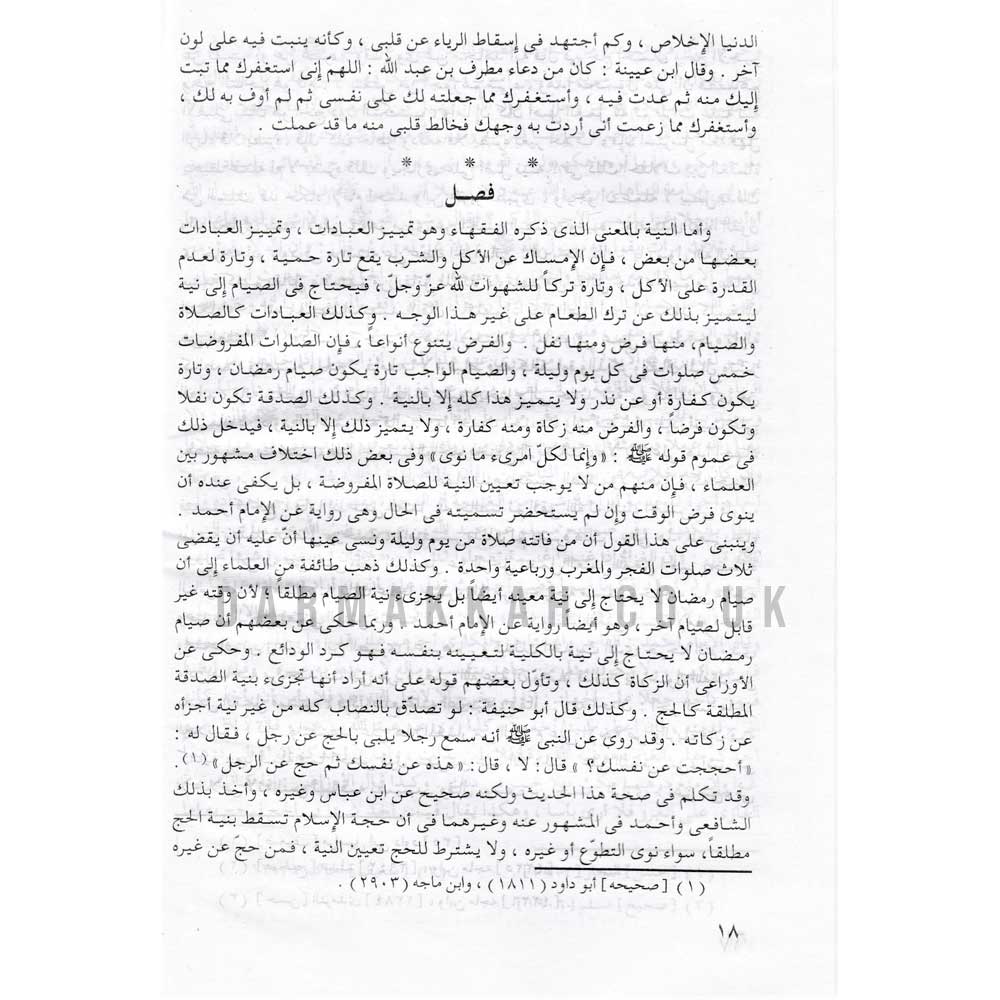 الدنيا الإخلاص ، وكم أجتهد فى إسقاط الرياء عن قلبى ، وكأنه ينبت فيه على لون
آخر . وقال ابن عيينة : كان من دعاء مطرف بن عبد الله : اللهمّ إنى استغفرك مما تبت
إليك منه ثم عدت فيه ، وأستغفرك مما جعلته لك على نفسى ثم لم أوف به لك ،
وأستغفرك مما زعمت أنى أردت به وجهك فخالط قلبى منه ما قد عملت .
* * *
فصل
وأما النية بالمعنى الذى ذكره الفقهاء وهو تمييز العبادات ، وتمييز العبادات
بعضها من بعض ، فإن الإمساك عن الأكل والشرب يقع تارة حمية ، وتارة لعدم
القدرة على الأكل ، وتارة تركاً للشهوات لله عزّ وجلّ ، فيحتاج فى الصيام إلى نية
ليتميز بذلك عن ترك الطعام على غير هذا الوجه . وكذلك العبادات كالصلاة
والصيام، منها فرض ومنها نفل . والفرض يتنوع أنواعاً ، فإن الصلوات المفروضات
خمس صلوات فى كل يوم وليلة ، والصيام الواجب تارة يكون صيام رمضان ، وتارة
يكون كفارة أو عن نذر ولا يتميز هذا كله إلا بالنية . وكذلك الصدقة تكون نفلا
وتكون فرضاً ، والفرض منه زكاة ومنه كفارة ، ولا يتميز ذلك إلا بالنية ، فيدخل ذلك
فى عموم قوله ﷺ : «وإنما لكلّ امرىء ما نوى» وفى بعض ذلك اختلاف مشهور بين
العلماء ، فإن منهم من لا يوجب تعيين النية للصلاة المفروضة ، بل يكفى عنده أن
ينوى فرض الوقت وإن لم يستحضر تسميته فى الحال وهى رواية عن الإمام أحمد .
وينبنى على هذا القول أن من فاتته صلاة من يوم وليلة ونسى عينها أنّ عليه أن يقضى
ثلاث صلوات الفجر والمغرب ورباعية واحدة . وكذلك ذهب طائفة من العلماء إلى أن
صيام رمضان لا يحتاج إلى نية معينه أيضاً بل يجزىء نية الصيام مطلقاً ، لأن وقته غير
قابل لصيام آخر ، وهو أيضا رواية عن الإمام أحمد . وربما حكى عن بعضهم أن صيام
رمضان لا يحتاج إلى نية بالكلية لتعيينه بنفسه فهو كرد الودائع . وحكى عن
الأوزاعى أن الزكاة كذلك ، وتأوّل بعضهم قوله على أنه أراد أنها تجزىء بنية الصدقة
المطلقة كالحج . وكذلك قال أبو حنيفة : لو تصدّق بالنصاب كله من غير نية أجزأه
عن زكاته . وقد روى عن النبى ﷺ أنه سمع رجلا يلبى بالحج عن رجل ، فقال له :
« أحججت عن نفسك؟ » قال: لا ، قال: « هذه عن نفسك ثم حج عن الرجل » (١).
وقد تكلم فى صحة هذا الحديث ولكنه صحيح عن ابن عباس وغيره ، وأخذ بذلك
الشافعى وأحمد فى المشهور عنه وغيرهما فى أن حجة الإسلام تسقط بنية الحج
مطلقاً، سواء نوى التطوّع أو غيره ، ولا يشترط للحج تعيين النية ، فمن حجّ عن غيره
(١) [صحيحه] أبو داود (١٨١١) ، وابن ماجه (٢٩٠٣) .
١٨
DARMAKKAH.CO.UK